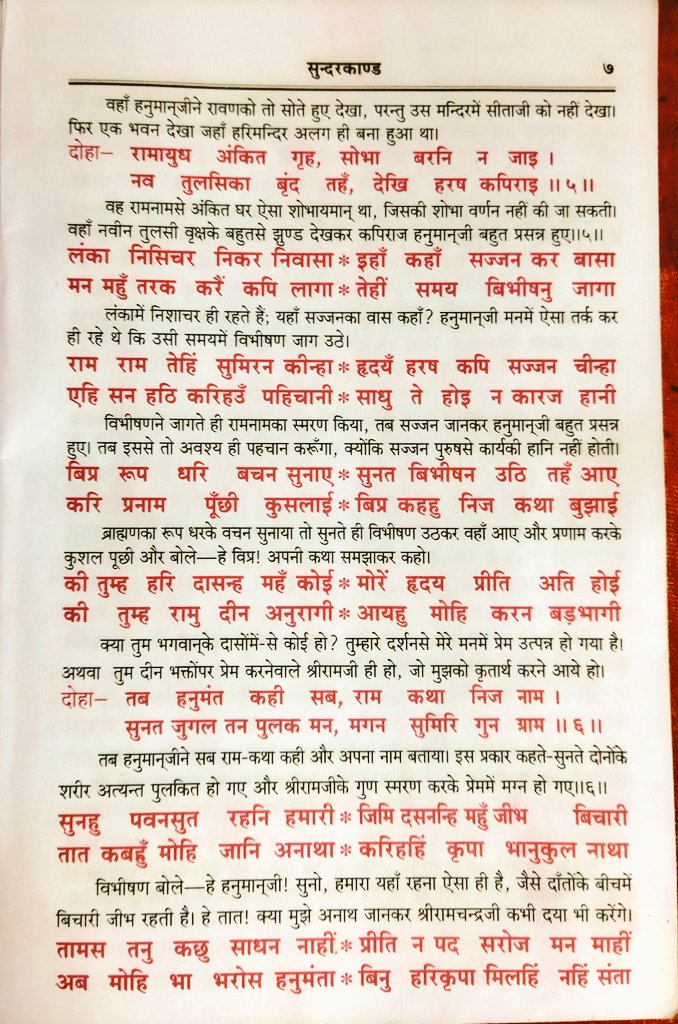 सुन्दरकाण्ड ७
वहाँ हनुमान्‌जीने रावणको तो सोते हुए देखा, परन्तु उस मन्दिरमें सीताजी को नहीं देखा।
फिर एक भवन देखा जहाँ हरिमन्दिर अलग ही बना हुआ था।
दोहा— रामायुध अंकित गृह, सोभा बरनि न जाइ ।
नव तुलसिका बृंद तहँ, देखि हरष कपिराइ ॥५॥
वह रामनामसे अंकित घर ऐसा शोभायमान् था, जिसकी शोभा वर्णन नहीं की जा सकती।
वहाँ नवीन तुलसी वृक्षके बहुतसे झुण्ड देखकर कपिराज हनुमान्‌जी बहुत प्रसन्न हुए॥५॥
लंका निसिचर निकर निवासा * इहाँ कहाँ सज्जन कर बासा
मन महुँ तरक करैं कपि लागा * तेहीं समय बिभीषनु जागा
लंकामें निशाचर ही रहते हैं; यहाँ सज्जनका वास कहाँ? हनुमान्‌जी मनमें ऐसा तर्क कर
ही रहे थे कि उसी समयमें विभीषण जाग उठे।
राम राम तेहिं सुमिरन कीन्हा * हृदयँ हरष कपि सज्जन चीन्हा
एहि सन हठि करिहउँ पहिचानी * साधु ते होइ न कारज हानी
विभीषणने जागते ही रामनामका स्मरण किया, तब सज्जन जानकर हनुमान्‌जी बहुत प्रसन्न
हुए। तब इससे तो अवश्य ही पहचान करूँगा, क्योंकि सज्जन पुरुषसे कार्यकी हानि नहीं होती।
बिप्र रूप धरि बचन सुनाए * सुनत बिभीषन उठि तहँ आए
करि प्रनाम पूँछी कुसलाई * बिप्र कहहु निज कथा बुझाई
ब्राह्मणका रूप धरके वचन सुनाया तो सुनते ही विभीषण उठकर वहाँ आए और प्रणाम करके
कुशल पूछी और बोले—हे विप्र! अपनी कथा समझाकर कहो।
की तुम्ह हरि दासन्ह महँ कोई * मोरें हृदय प्रीति अति होई
की तुम्ह रामु दीन अनुरागी * आयहु मोहि करन बड़भागी
क्या तुम भगवान्‌के दासोंमें-से कोई हो? तुम्हारे दर्शनसे मेरे मनमें प्रेम उत्पन्न हो गया है।
अथवा तुम दीन भक्तोंपर प्रेम करनेवाले श्रीरामजी ही हो, जो मुझको कृतार्थ करने आये हो।
दोहा— तब हनुमंत कही सब, राम कथा निज नाम ।
सुनत जुगल तन पुलक मन, मगन सुमिरि गुन ग्राम ॥६॥
तब हनुमान्‌जीने सब राम-कथा कही और अपना नाम बताया। इस प्रकार कहते-सुनते दोनोंके
शरीर अत्यन्त पुलकित हो गए और श्रीरामजीके गुण स्मरण करके प्रेममें मग्न हो गए॥६॥
सुनहु पवनसुत रहनि हमारी * जिमि दसनन्हि महुँ जीभ बिचारी
तात कबहुँ मोहि जानि अनाथा * करिहहिं कृपा भानुकुल नाथा
विभीषण बोले—हे हनुमान्‌जी! सुनो, हमारा यहाँ रहना ऐसा ही है, जैसे दाँतोंके बीचमें
बिचारी जीभ रहती है। हे तात! क्या मुझे अनाथ जानकर श्रीरामचन्द्रजी कभी दया भी करेंगे।
तामस तनु कछु साधन नाहीं * प्रीति न पद सरोज मन माहीं
अब मोहि भा भरोस हनुमंता * बिनु हरिकृपा मिलहिं नहिं संता